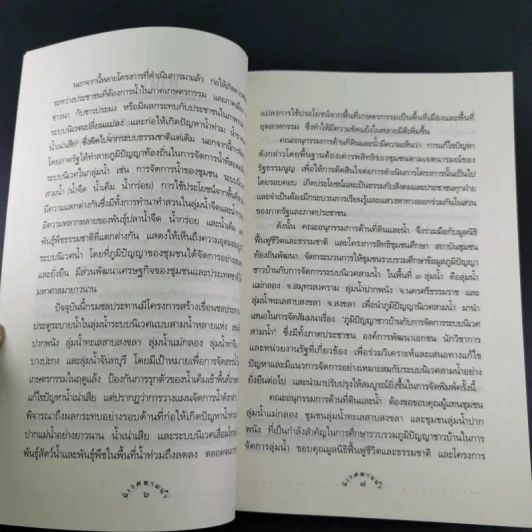 นอกจากนี้หลายโครงการที่ดำเนินการมาแล้ว ก่อให้เกิดความ
ระหว่างประชาชนที่ต้องการน้ำในภาคเกษตรกรรม และภาคเมือง
ชาวนา กับชาวประมง หรือมีผลกระทบกับประชาชนในภาค
ระบบนิเวศเปลี่ยนแปลง และก่อให้เกิดปัญหาน้ำท่วม น้ำ
น้ำเน่าเสีย ซึ่งผิดไปจากระบบธรรมชาติแต่เดิม นอกจากนี้
โดยภาครัฐได้ทำลายภูมิปัญญาท้องถิ่นในการจัดการน้ำที่สอด
ระบบนิเวศในลุ่มน้ำ เช่น การจัดการน้ำของชุมชน ระบบนิ
สามน้ำ (น้ำจืด น้ำเค็ม น้ำกร่อย) การใช้ประโยชน์จากพื้นที่
มีความแตกต่างกันซึ่งมีทั้งการทำนาทำสวนในลุ่มน้ำจืดและ
มีความหลากหลายของพันธุ์ปลาน้ำจืด น้ำกร่อย และน้ำเค็ม
พันธุ์พืชธรรมชาติที่แตกต่างกัน แสดงให้เห็นถึงความอุดมสมบู
ระบบนิเวศน้ำ โดยที่ภูมิปัญญาของชุมชนได้จัดการอย่าง
และยั่งยืน มีส่วนพัฒนาเศรษฐกิจของชุมชนและประเทศชาติ
มหาศาลมายาวนาน
ปัจจุบันนี้กรมชลประทานมีโครงการสร้างเขื่อนชลประ
ประตูระบายน้ำในลุ่มน้ำระบบนิเวศแบบสามน้ำหลายแห่ง เช่น
ปากพนัง ลุ่มน้ำทะเลสาบสงขลา ลุ่มน้ำแม่กลอง ลุ่มน้ำ
บางปะกง และลุ่มน้ำจันทบุรี โดยมีเป้าหมายเพื่อการจัดสรรน้ำ
เกษตรกรรมในฤดูแล้ง ป้องกันการรุกตัวของน้ำเค็มเข้าพื้นที่
แก้ไขปัญหาน้ำเน่าเสีย แต่ปรากฏว่าการวางแผนจัดการน้ำ
พิจารณาถึงผลกระทบอย่างรอบด้านที่ก่อให้เกิดปัญหาน้ำท่วม
ปากแม่น้ำอย่างยาวนาน น้ำเน่าเสีย และระบบนิเวศเสื่อมโทรม
พันธุ์สัตว์น้ำและพันธุ์พืชในพื้นที่น้ำท่วมถึงลดลง ตลอดจน
นิเวศสามน้ำ
๖
แปลงการใช้ประโยชน์จากพื้นที่เกษตรกรรมเป็นพื้นที่เมืองและพื้นที่
อุตสาหกรรม ซึ่งทำให้มีความขัดแย้งในหลายมิติเพิ่มขึ้น
คณะอนุกรรมการด้านที่ดินและน้ำมีความเห็นว่า การแก้ไขปัญหา
ดังกล่าวโดยพื้นฐานต้องเคารพสิทธิของชุมชนตามเจตนารมณ์ของ
รัฐธรรมนูญ เพื่อให้การตัดสินใจต่อการดำเนินการโครงการนั้นเป็นไป
โดยรอบคอบ เกิดประโยชน์และเป็นธรรมกับสังคมและประชาชนทุกฝ่าย
และจำเป็นต้องมีกระบวนการเรียนรู้และแสวงหาทางออกร่วมกันในส่วน
ของภาครัฐและภาคประชาชน
ดังนั้น คณะอนุกรรมการด้านที่ดินและน้ำ จึงร่วมมือกับมูลนิธิ
ฟื้นฟูชีวิตและธรรมชาติ และโครงการสิทธิชุมชนศึกษา สถาบันชุมชน
ท้องถิ่นพัฒนา จัดกระบวนการให้ชุมชนรวบรวมศึกษาข้อมูลภูมิปัญญา
ชาวบ้านกับการจัดการระบบนิเวศสามน้ำ ในพื้นที่ ๓ ลุ่มน้ำ คือลุ่มน้ำ
แม่กลอง จ.สมุทรสงคราม ลุ่มน้ำปากพนัง จ.นครศรีธรรมราช และ
ลุ่มน้ำทะเลสาบสงขลา จ.สงขลา เพื่อนำภูมิปัญญานิเวศสามน้ำ มานำ
เสนอในการจัดสัมมนาเรื่อง "ภูมิปัญญาชาวบ้านกับการจัดการระบบนิเวศ
สามน้ำ" ซึ่งมีทั้งภาคประชาชน องค์การพัฒนาเอกชน นักวิชาการ
และหน่วยงานรัฐที่เกี่ยวข้อง เพื่อร่วมวิเคราะห์และเสนอทางแก้ไข
ปัญหาและแนวการจัดการอย่างเหมาะสมกับระบบนิเวศสามน้ำอย่าง
ยั่งยืนต่อไป และนำมาปรับปรุงให้สมบูรณ์ยิ่งขึ้นในการจัดพิมพ์ครั้งนี้
คณะอนุกรรมการด้านที่ดินและน้ำ ต้องขอขอบคุณผู้แทนชุมชน
ลุ่มน้ำแม่กลอง ชุมชนลุ่มน้ำทะเลสาบสงขลา และชุมชนลุ่มน้ำปาก
พนัง ที่เป็นกำลังสำคัญในการศึกษารวบรวมภูมิปัญญาชาวบ้านในการ
จัดการลุ่มน้ำ ขอบคุณมูลนิธิฟื้นฟูชีวิตและธรรมชาติ และโครงการ
นิเวศสามน้ำ